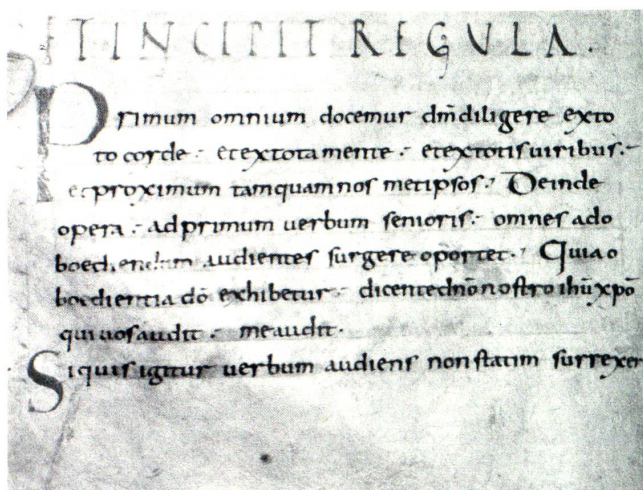 ET INCIPIT REGULA.
Primum omnium docemur dm̄ diligere exto
to corde · et extota mente · et extotis uiribus ·
et proximum tamquam nos metipsos · Deinde
opera · ad primum uerbum senioris · omnes ado
boediendum audientes surgere oportet · Quia o
boedientia dō exhibetur · dicente dn̄o nostro ihū xp̄o
qui uos audit · me audit ·
Si quis igitur uerbum audiens non statim surrexer